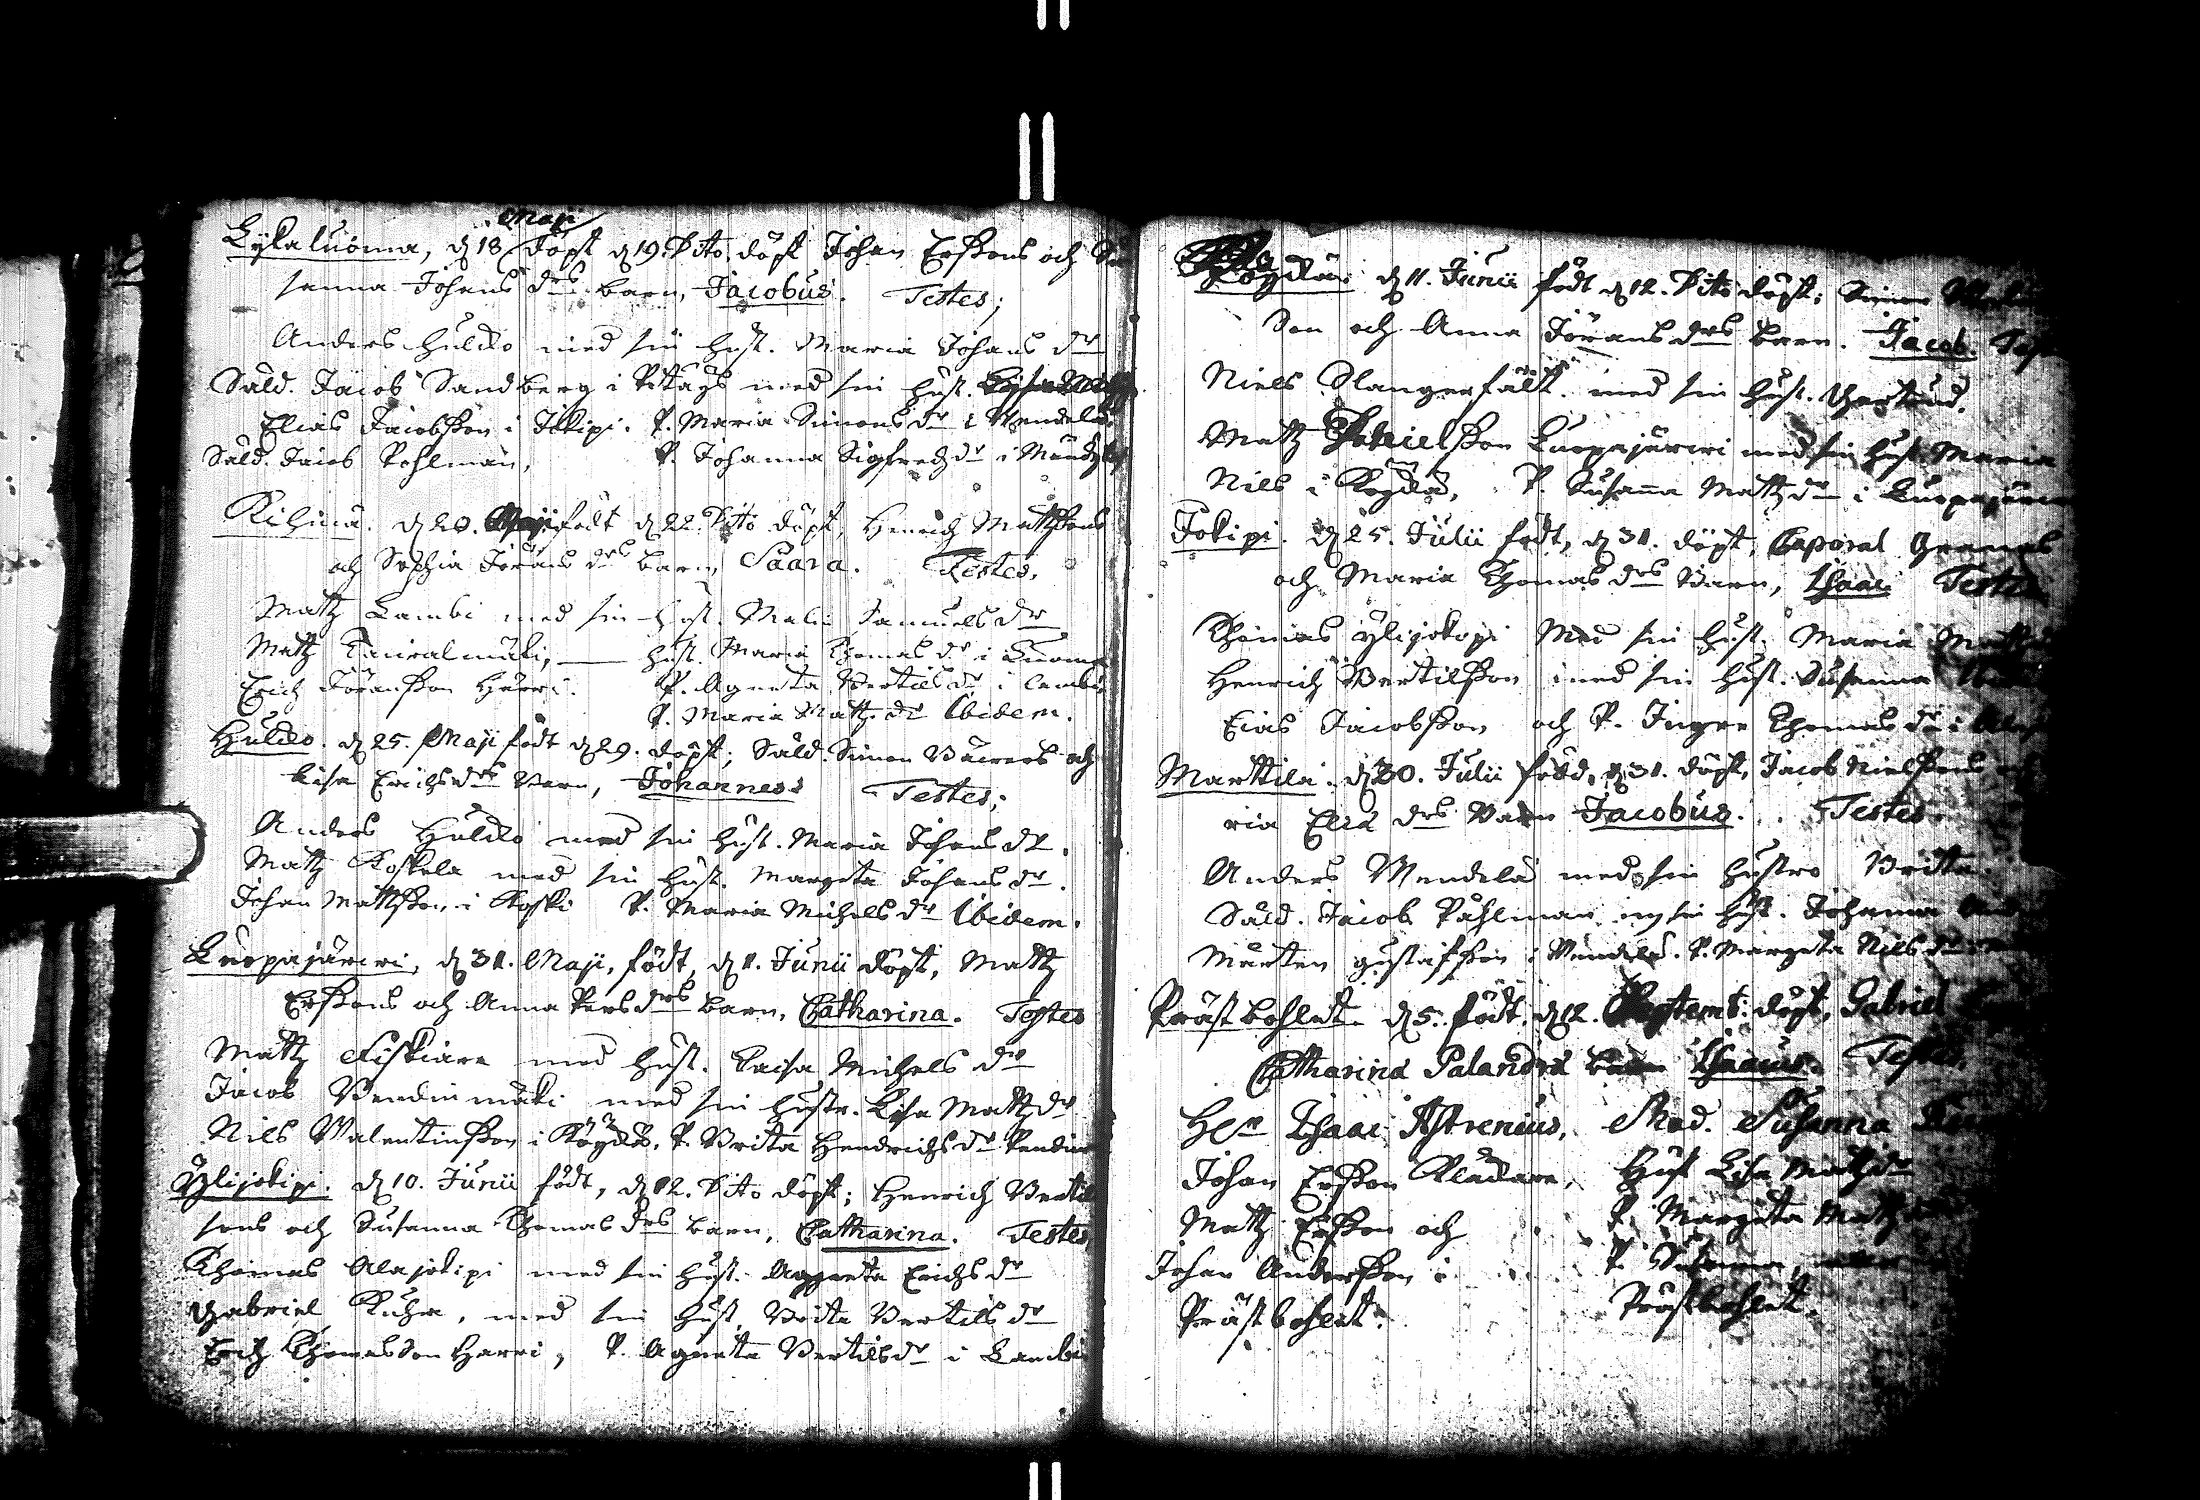 Maji
Lykaluoma, d 18 döpt d 19. Dito döpt Johan Erssons och Su
sanna Johans drs barn, Jacobus. Testes;
Anders Huldo med sin hust. Maria Johans dr
Sald. Jacob Sandberg i med sin hust.
Elias Jacobsson i Jokipi. P. Maria Simons dr i Mendelä
Sald. Jacob Pohlman, P. Johanna Sigfredz dr i
Kihinä. d 20. Maji födt d 22. Dito döpt, Henrich Mattssons
och Sophia Jörans drs barn, Saara. Testes,
Mattz Lambi med sin hust. Malin Samuels dr
Mattz hust. Maria Thomas dr i Luoma
Erich Jöransson Harri. P. Agneta Bertils dr i Lambi
P. Maria Mattz dr Ibidem.
Huldo. d 25. Maji födt d 29. döpt; Sald. Simon och
Lisa Erichs drs Barn, Johannes: Testes;
Anders Huldo med sin hust. Maria Johans dr.
Mattz Koskela med sin hust. Margeta Johans dr.
Johan Mattsson i Koski P. Maria Michels dr Ibidem.
Luopajärwi, d 31. Maji, födt, d 1. Junii döpt, Mattz
Erssons och Anna Pers drs barn, Catharina. Testes
Mattz Fiskiare med hust. Caisa Michels dr
Jacob Pendinmäki med sin hustr. Lisa Mattz dr
Nils Valentinsson i Kögdä, P. Brita Hendrichs dr Pendin
Ylijokipi. d 10. Junii födt, d 12. Dito döpt; Henrich Bertil
sons och Susanna Thomas drs barn, Catharina. Testes,
Thomas Alajokipi med sin hust. Agneta Erichs dr
Gabriel Kuha, med sin hust. Brita Bertils dr
Erich Thomasson Harri, P. Agneta Bertils dr i Lambi
Kögdän d 11. Junii födt d 12. Dito döpt; Simon
Son och Anna Jörans drs barn. Jacob. Tes
Niels Slangerfält. med sin hust. Gertrud.
Mattz Gabrielsson Luopajärwi med sin hust. Maria
Nils i Kögdä, P. Susanna Mattz dr i Luopajärwi
Jokipi. d 25. Julii födt, d 31. döpt, Caporal
och Maria Thomas drs Barn, Isaac Testes
Thomas Ylijokipi Med sin hust. Maria
Henrich Bertilsson med sin hust. Susanna
Eias Jacobsson och P. Ingre Thomas dr i
Marttila. d 30. Julii född, d 31. döpt, Jacob Nielssons
ria Eliæ drs Barn Jacobus. Testes.
Anders Mendelä med sin hustro Britta
Sald. Jacob Påhlman m sin hust. Johanna
Mårten Gustafsson i Mendelä. P. Margeta Nils dr
Prästbohlet. d 5. födt, d 12. Septemb: döpt, Gabriel
Catharina Palandra barn Isaacus. Testes,
Hr Isaac Astrenius, Mad. Susanna
Johan Ersson Kladare, Hust Lisa Mattz dr
Mattz Ersson och P. Margeta Mattz
Johan Andersson i P. Susanna
Prästbohlet. Prästbohlet.